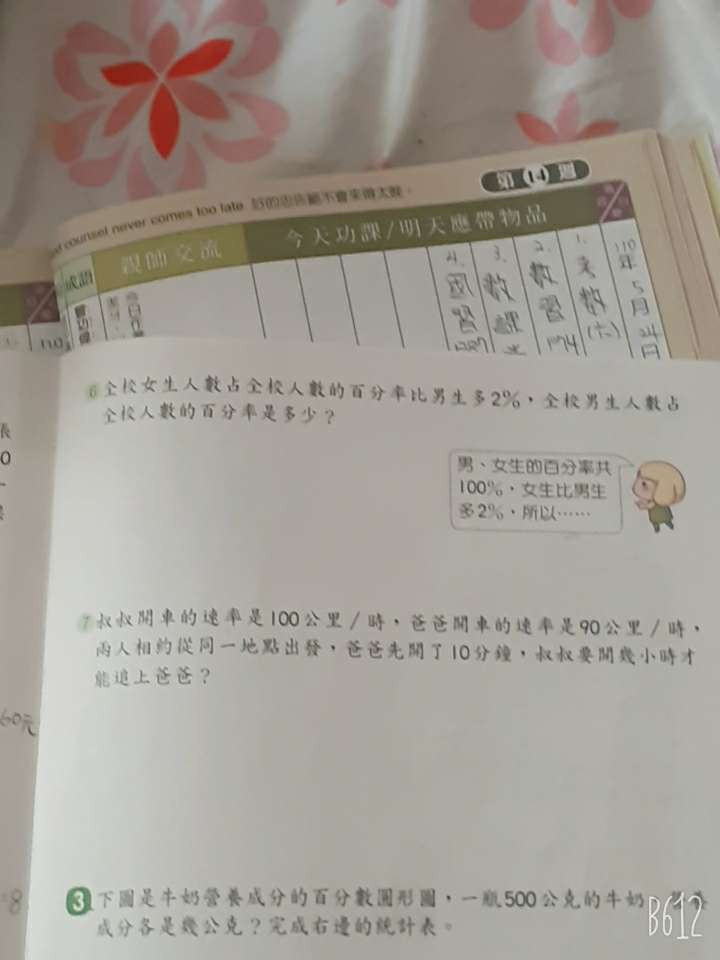 第 14 週
counsel never comes too late. 好的忠告嚴不會來得太晚。
成語
親師交流
今天功課/明天應帶物品
110年5月24日
1.
數(六)
2. 數習 174
3. 數課
4. 國習
6 全校女生人數占全校人數的百分率比男生多2%，全校男生人數占
全校人數的百分率是多少？
男、女生的百分率共
100%，女生比男生
多2%，所以……
7 叔叔開車的速率是100公里／時，爸爸開車的速率是90公里／時，
兩人相約從同一地點出發，爸爸先開了10分鐘，叔叔要開幾小時才
能追上爸爸？
60元
8
3 下圖是牛奶營養成分的百分數圓形圖，一瓶500公克的牛奶，
成分各是幾公克？完成右邊的統計表。
B612